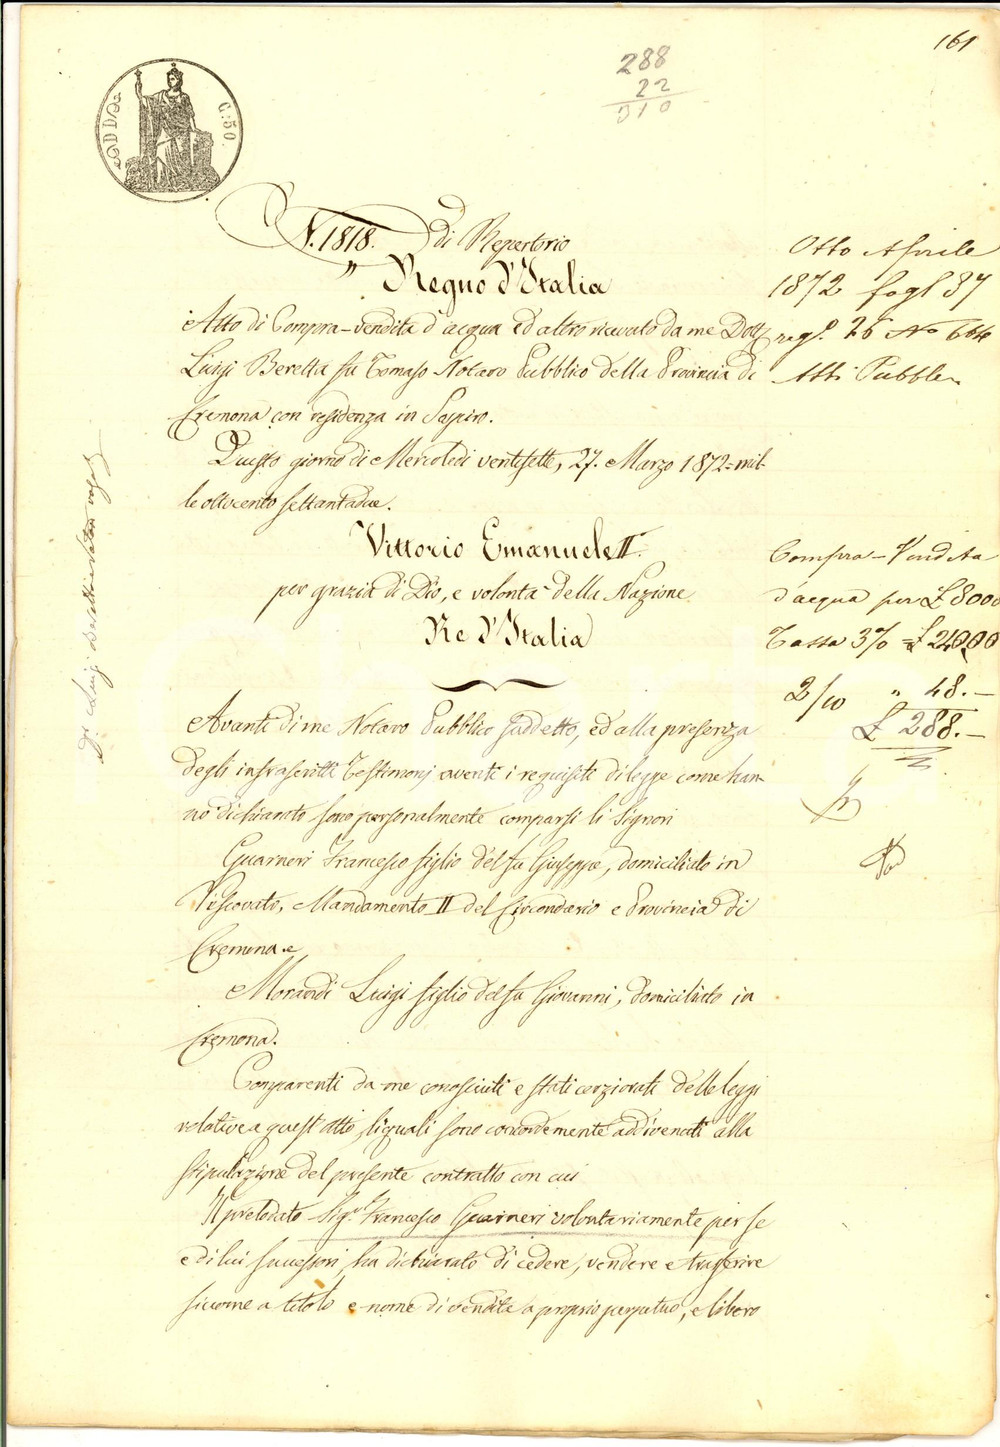 161
288
22
310
C. 50
N. 1818. di Repertorio
Regno d'Italia
Atto di Compra-vendita d'acqua ed altro ricevuto da me Dott.
Luigi Beretta fu Tomaso Notaro Pubblico della Provincia di
Cremona con residenza in
Questo giorno di Mercoledì ventisette, 27. Marzo 1872=mil-
le ottocento settantadue.
Vittorio Emanuele II.
per grazia di Dio, e volontà della Nazione
Re d'Italia
Avanti di me Notaro Pubblico suddetto, ed alla presenza
degli infrascritti Testimonj aventi i requisiti di legge come han-
no dichiarato sono personalmente comparsi li Signori
Guarneri Francesco figlio del fu Giuseppe, domiciliato in
Vescovato, Mandamento II del Circondario e Provincia di
Cremona. e
Morandi Luigi figlio del fu Giovanni, domiciliato in
Cremona.
Comparenti da me conosciuti e stati cerziorati delle leggi
relative a quest'atto, li quali sono concordemente addivenuti alla
stipulazione del presente contratto con cui
Il prelodato Sig.r Francesco Guarneri volontariamente per se
e di lui successori, ha dichiarato di cedere, vendere e trasferire
siccome a titolo e nome di vendita a proprio perpetuo, e libero
Otto Aprile
1872 fogl 37
regl. 26 No 664
Atti Pubbl
Compra-Vendita
d'acqua per £ 8000
Tassa 3% = £ 240,00
2/10 " 48.-
£ 288.-